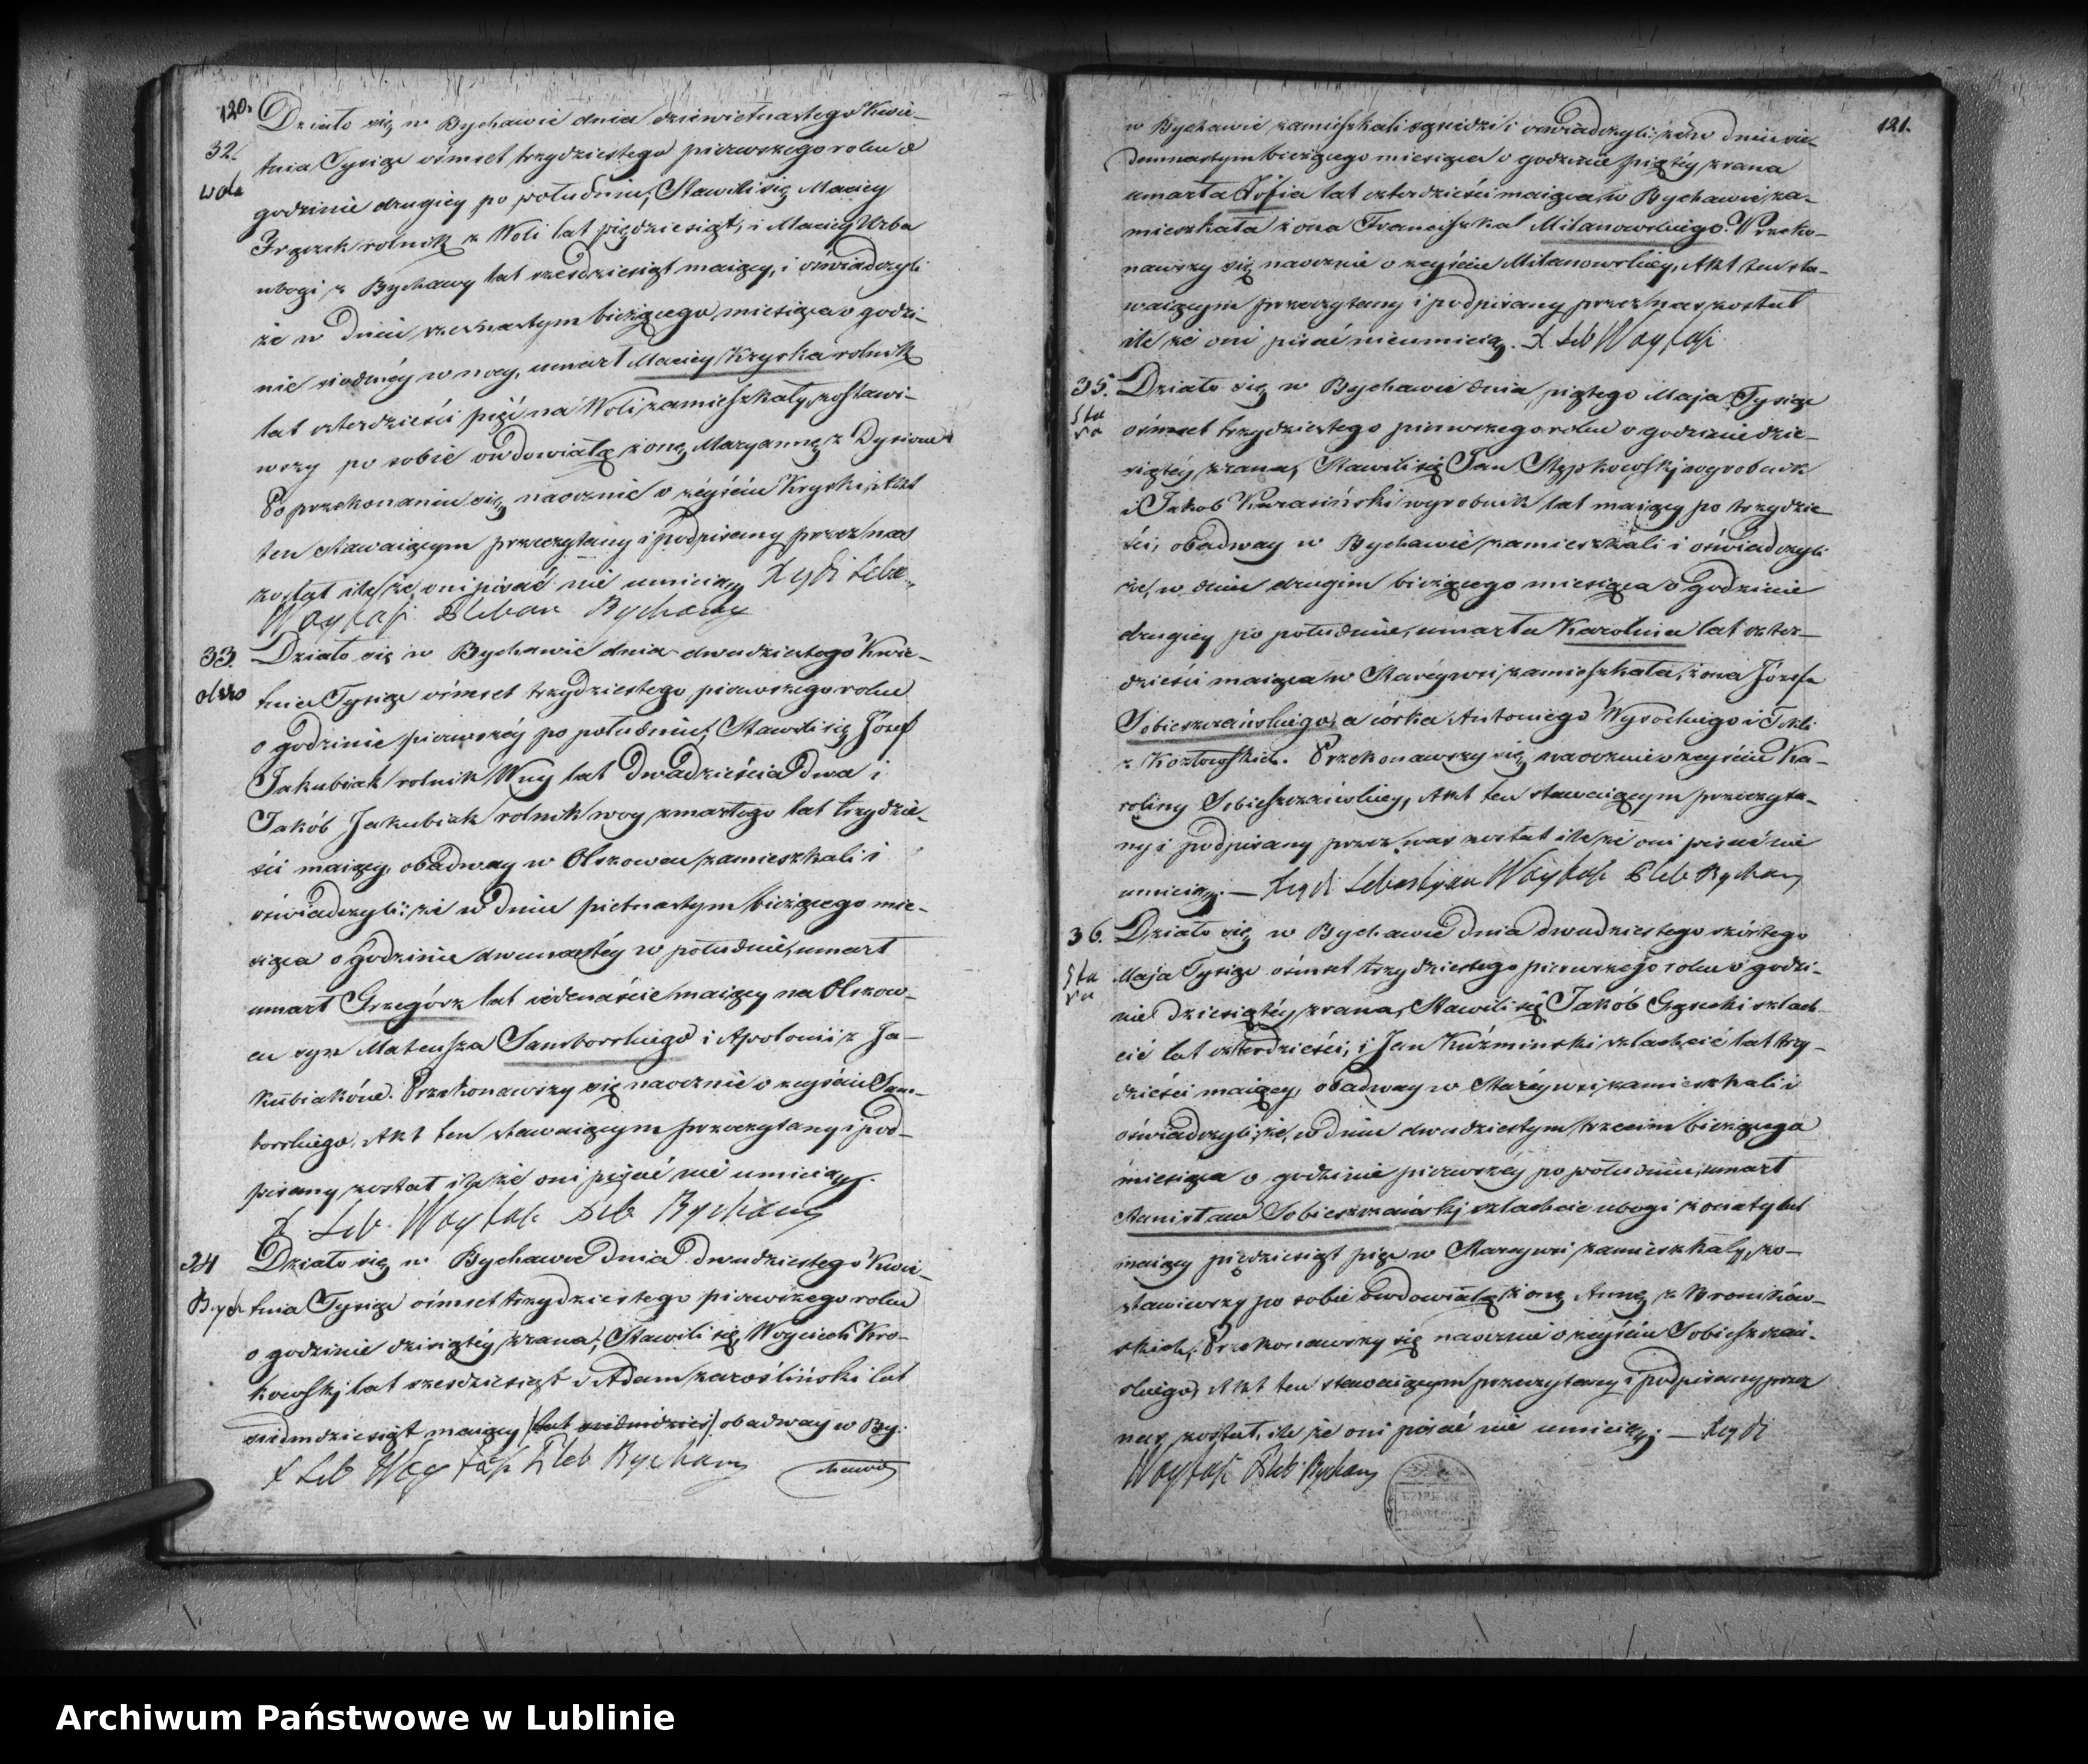 120.
Działo się w Bychawie dnia dziewiętnastego Kwie-
32.
tnia Tysiąc ośmset trzydziestego pierwszego roku o
wola
godzinie drugiey po południu, Stawili się Maciey
rolnik z Woli lat pięćdziesiąt, i Maciey Urba
ubogi z Bychawy lat sześdziesiąt maiący, i oświadczyli
że w dniu szesnastym bieżącego miesiąca o godzi-
nie siódméy w nocy, umarł Maciey Kryska rolnik
lat czterdzieści pięć na Woli zamieszkały, zostawi-
wszy po sobie owdowiałą żonę Maryannę z
Po przekonaniu się naocznie o zéyściu Kryski, Akt
ten stawaiącym przeczytany i podpisany przez nas
został ile że oni pisać nie umieią Xądz Seba.
Woytasz Pleban Bychawy
33
Działo się w Bychawie dnia dwudziestego Kwie-
olszo
tnia Tysiąc ośmset trzydziestego pierwszego roku
o godzinie pierwszéy po południu, Stawili się Józef
Jakubiak rolnik Wuy lat Dwadzieścia dwa i
Jakób Jakubiak rolnik wuy zmarłego lat trzydzie-
ści maiący, obadway w Olszowcu zamieszkali i
oświadczyli; że w dniu pietnastym bieżącego mie-
siąca o godzinie dwunastéy w południe, umarł
umarł Grzegórz lat iedenaście maiący na Olszow-
cu syn Mateusza Samborskiego i Apolonii z Ja-
kubiaków. Przekonawszy się naocznie o zeyściu Sam-
borskiego, Akt ten stawaiącym przeczytany i pod-
pisany został ile że oni pisać nie umieią.
X. Seb. Woytasz Pleb Bychawy
34
Działo się w Bychawie Dnia dwudziestego Kwie-
Bych
tnia Tysiąc ośmset trzydziestego pierwszego roku
o godzinie dziesiątéy zrana, Stawili się Woyciech Kro-
kowski lat sześdziesiąt i Adam zarośliński lat
siedmdziesiąt maiący obadway w By-
X Seb Woytasz Pleb Bychawy
chawie
121.
w Bychawie zamieszkali sąsiedzi i oświadczyli: że w dniu sie-
demnastym bieżącego miesiąca o godzinie piątéy zrana
umarła Zofia lat czterdzieści maiąca, w Bychawie za-
mieszkała żona Franciszka Milanowskiego. Przeko-
nawszy się naocznie o zeyściu Milanowskiey, Akt ten sta-
waiącym przeczytany i podpisany przez nas został
ile że oni pisać nieumieią. X Seb Woytasz
35.
Działo się w Bychawie dnia piątego Maja Tysiąc
Sta
ra
ośmset trzydziestego pierwszego roku o godzinie dzie-
siątéy zrana, Stawili się Jan wyrobnik
i Jakob Kurasiński wyrobnik lat maiący po trzydzie
ści, obadway w Bychawie zamieszkali i oświadczyli
że, w dniu drugim bieżącego miesiąca o godzinie
drugiey po południu, umarła Karolina lat czter-
dzieści maiąca w Staréywsi zamieszkała, żona Józefa
Sobieszczańskiego, a córka Antoniego Wysockiego i Tekli
z Kozłowskich. Przekonawszy się naocznie o zeyściu Ka-
roliny Sobieszczańskiey, Akt ten stawaiącym przeczyta-
ny i podpisany przez nas został ile że oni pisać nie
umieią. — Xądz Sebastyan Woytasz Pleb Bychawy
36.
Działo się w Bychawie Dnia dwudziestego szóstego
Sta
ra
Maja Tysiąc ośmset trzydziestego pierwszego roku o godzi-
nie dziesiątéy zrana, Stawili się Jakób szlach-
cic lat czterdzieści, i Jan Kuźminski szlachcic lat trzy-
dzieści maiący, obadway w Staréywsi zamieszkali i
oświadczyli, że, w dniu dwudziestym trzecim bieżącego
miesiąca o godzinie pierwszéy po południu, umarł
Stanisław Sobieszczański szlachcic ubogi żonaty lat
maiący pięćdziesiąt pięć w Stareywsi zamieszkały, zo-
stawiwszy po sobie owdowiałą żonę Annę z Broników-
skich, Przekonawszy się naocznie o zeyściu Sobieszczań-
skiego, Akt ten stawaiącym przeczytany i podpisany przez
nas został, ile że oni pisać nie umieią; — Xądz
Woytasz Pleb Bychawy
Archiwum Państwowe w Lublinie